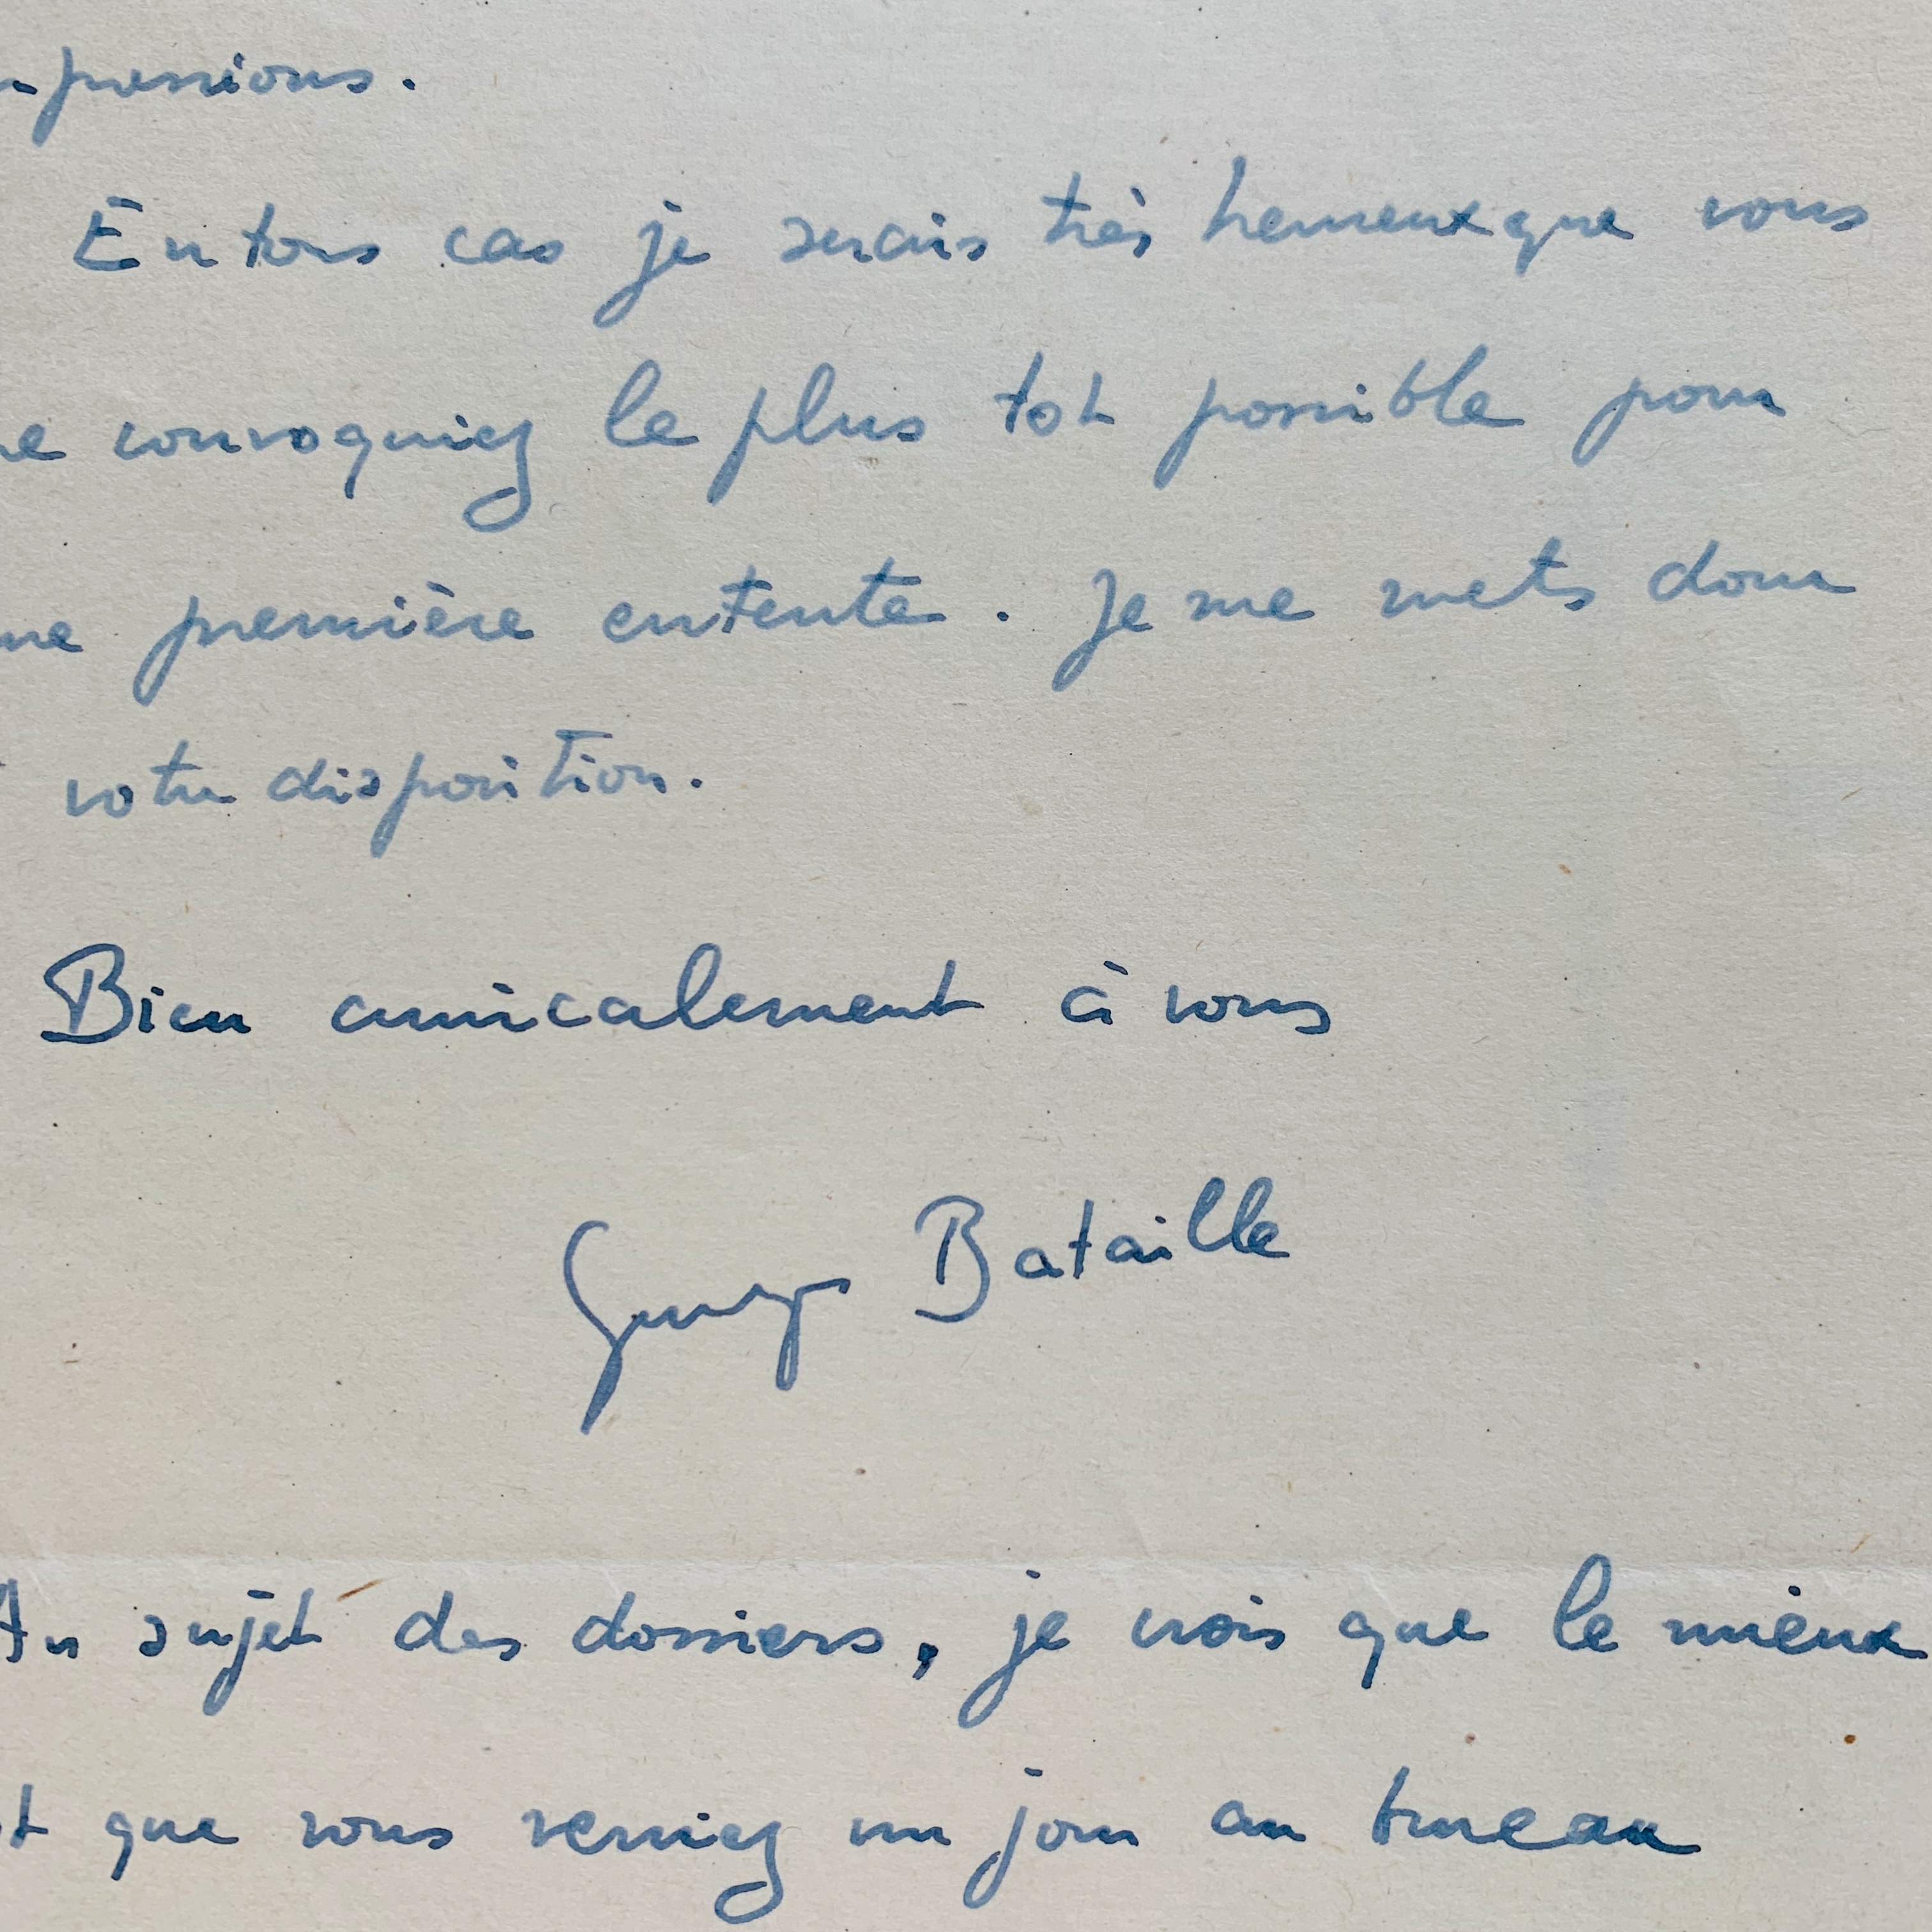 pressions.
En tous cas je serais très heureux que vous
me convoquiez le plus tot possible pour
une première entente. Je me mets donc
votre disposition.
Bien amicalement à vous
Georges Bataille
Au sujet des dossiers, je crois que le mieux
est que vous veniez un jour au bureau